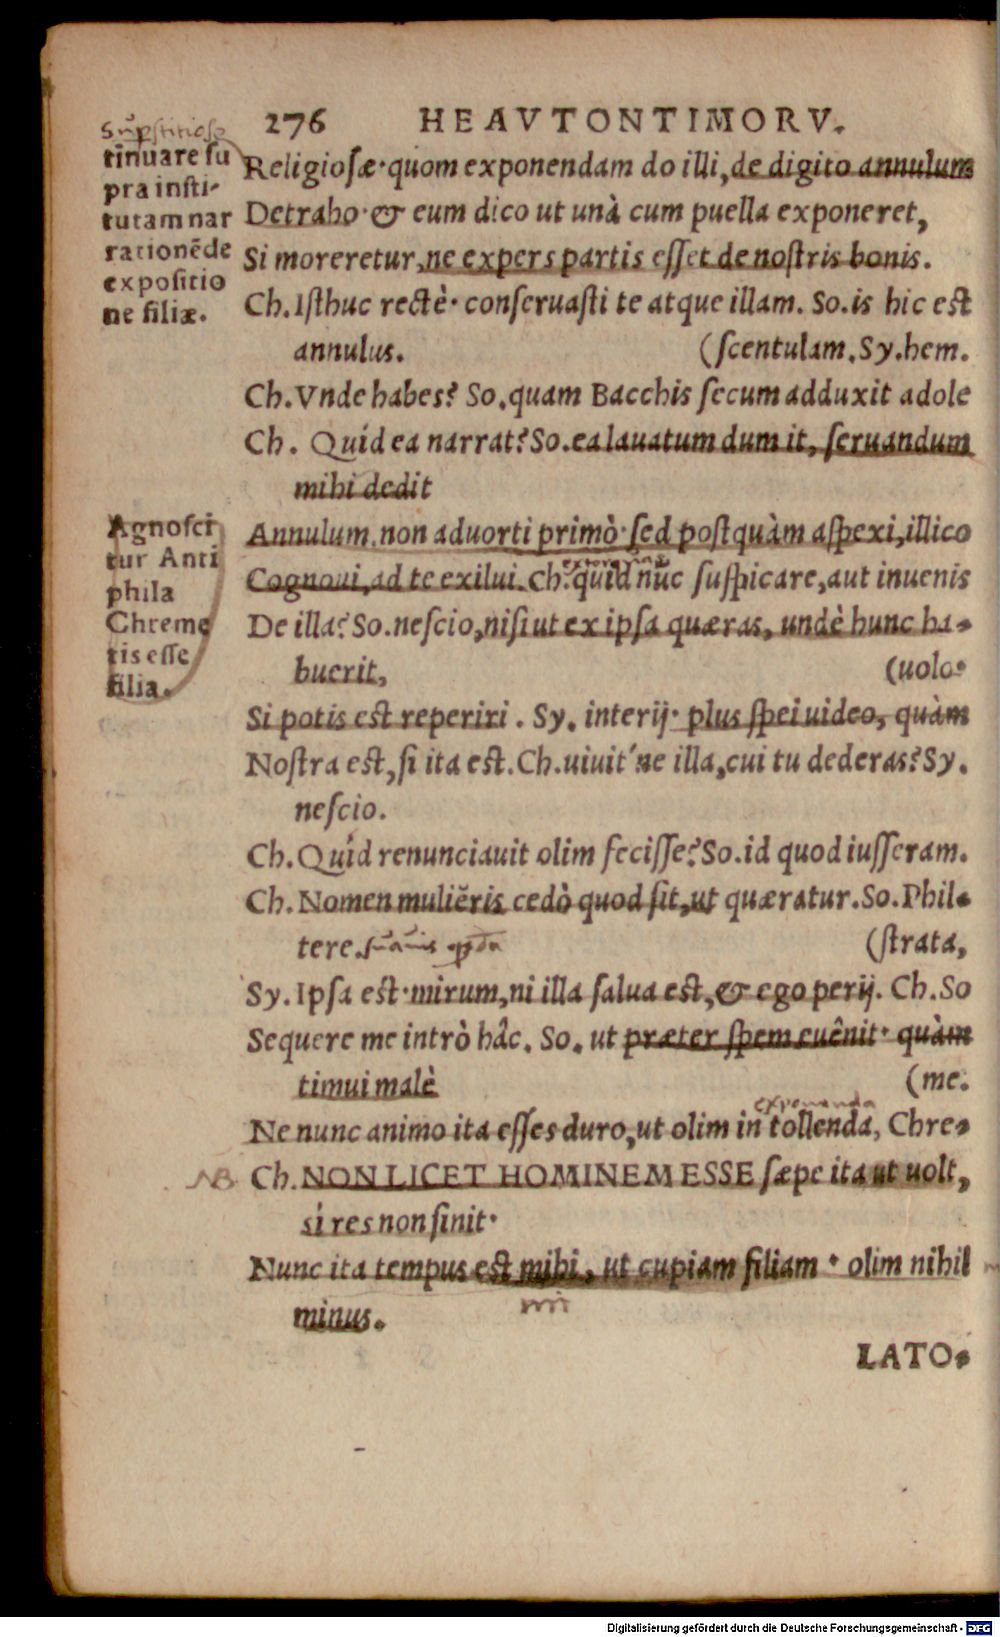 276 HEAVTONTIMORV.
Supstitiose
tīnuare ſu
pra inſti-
tutam nar
rationēde
expoſitio
ne filiæ.
Religioſæ· quom exponendam do illi, de digito annulum
Detraho· & eum dico ut unà cum puella exponeret,
Si moreretur, ne expers partis eſſet de noſtris bonis.
Ch. Iſthuc rectè· conſeruaſti te atque illam. So. is hic est
annulus. (ſcentulam. Sy. hem.
Ch. Vnde habes? So. quam Bacchis ſecum adduxit adole
Ch. Quid ea narrat? So. ea lauatum dum it, ſeruandum
mihi dedit
Agnoſci
tur Anti
phila
Chreme
tis eſſe
filia.
Annulum. non aduorti primò· ſed postquàm aſpexi, illico
Cognoui, ad te exilui. Ch. quid nūc ſuſpicare, aut inuenis
De illa? So. neſcio, niſi ut ex ipſa quæras, undè hunc ha-
buerit, (uolo·
Si potis est reperiri. Sy. interij· plus ſpei uideo, quàm
Nostra est, ſi ita est. Ch. uiuit'ne illa, cui tu dederas? Sy.
neſcio.
Ch. Quid renunciauit olim feciſſe? So. id quod iuſſeram.
Ch. Nomen muliĕris cedò quod ſit, ut quæratur. So. Phil-
tere. (ſtrata,
Sy. Ipſa est· mirum, ni illa ſalua est, & ego perij. Ch. So
Sequere me intrò hâc. So. ut præter ſpem euênit· quàm
timui malè (me.
exponenda
Ne nunc animo ita eſſes duro, ut olim in tollenda, Chre-
NB Ch. NON LICET HOMINEM ESSE ſæpe ita ut uolt,
ſi res non ſinit·
Nunc ita tempus est mihi, ut cupiam filiam· olim nihil
minus.
LATO-
Digitalisierung gefördert durch die Deutsche Forschungsgemeinschaft - DFG